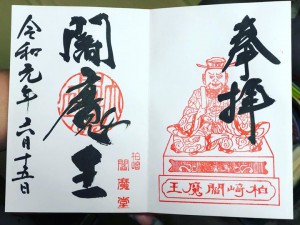 奉拝
柏崎閻魔王
閻魔王
柏崎
閻魔堂
令和元年六月十五日